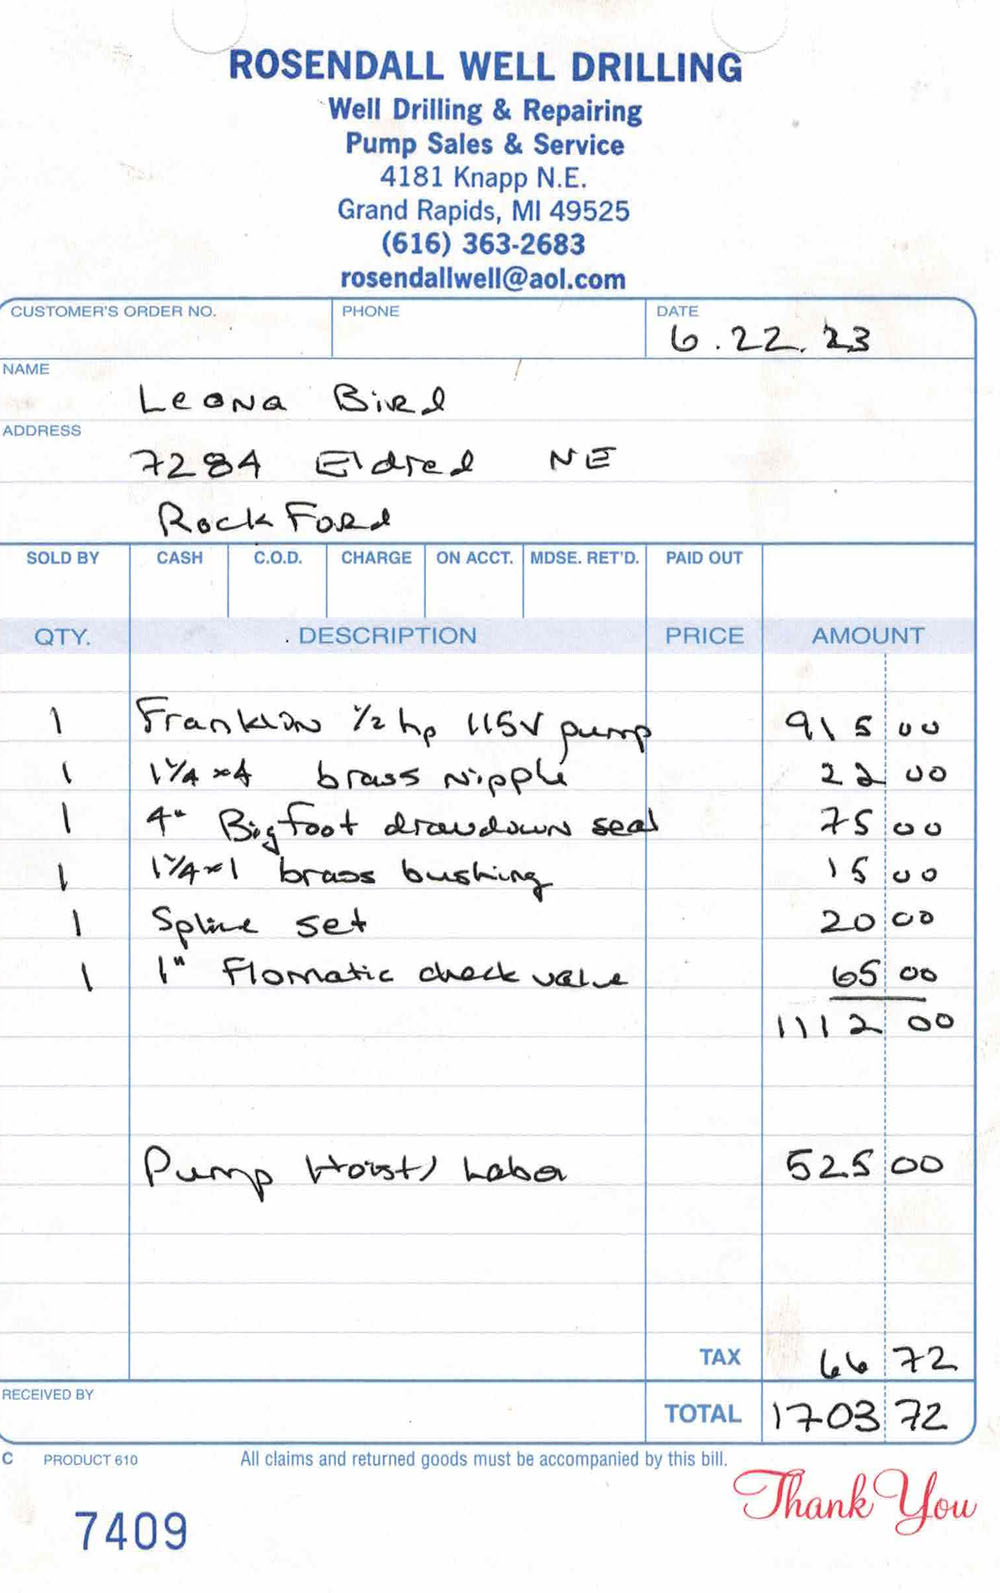 ROSENDALL WELL DRILLING
Well Drilling & Repairing
Pump Sales & Service
4181 Knapp N.E.
Grand Rapids, MI 49525
(616) 363-2683
rosendallwell@aol.com
CUSTOMER'S ORDER NO. PHONE DATE
6.22.23
NAME
Leona Bird
ADDRESS
7284 Eldred NE
Rockford
SOLD BY CASH C.O.D. CHARGE ON ACCT. MDSE. RET'D. PAID OUT
QTY. DESCRIPTION PRICE AMOUNT
1 Franklin 1/2 hp 115V pump 915 00
1 1 1/4 x 4 brass nipple 22 00
1 4" Bigfoot drawdown seal 75 00
1 1 1/4 x 1 brass bushing 15 00
1 Spline set 20 00
1 1" Flomatic check valve 65 00
1112 00
Pump Hoist / Labor 525 00
TAX 66 72
RECEIVED BY
TOTAL 1703 72
C PRODUCT 610 All claims and returned goods must be accompanied by this bill.
Thank You
7409